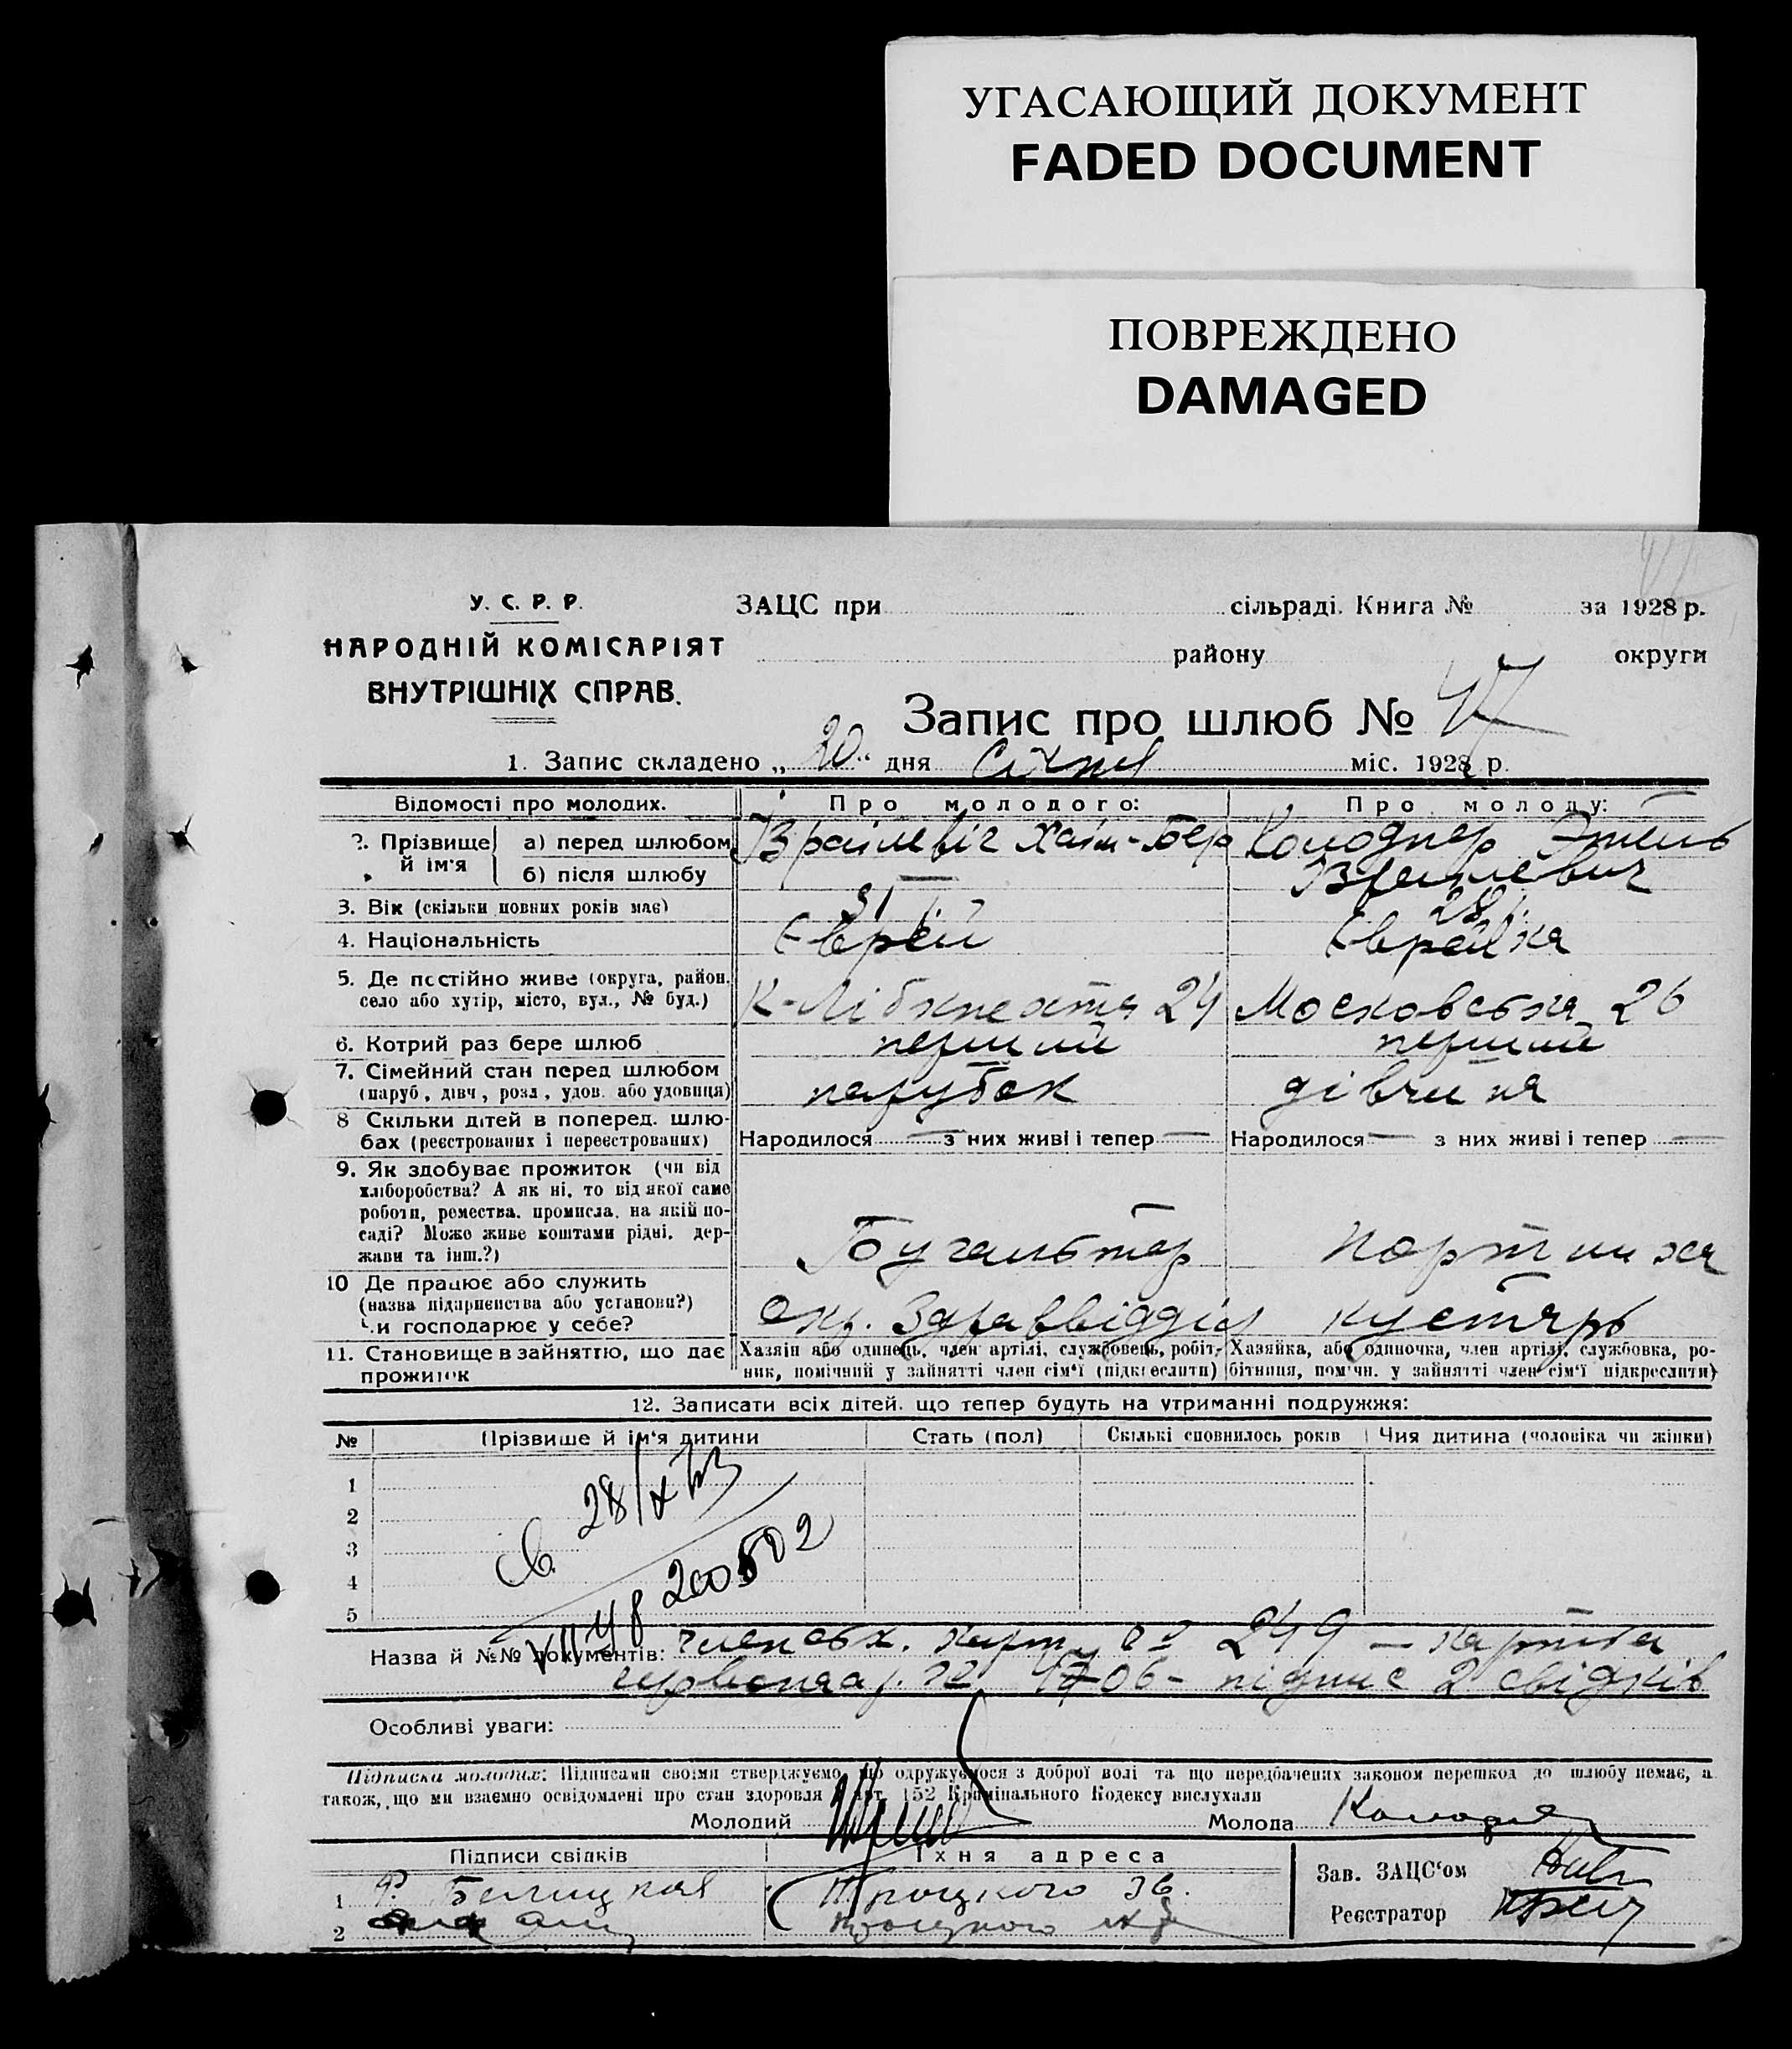 УГАСАЮЩИЙ ДОКУМЕНТ
FADED DOCUMENT
ПОВРЕЖДЕНО
DAMAGED
У. С. Р. Р.
НАРОДНІЙ КОМІСАРІЯТ
ВНУТРІШНІХ СПРАВ.
ЗАЦС при сільраді. Книга № за 1928 р.
району округи
Запис про шлюб № 47
1. Запис складено „20“ дня Січня міс. 1928 р.
Відомості про молодих. Про молодого: Про молоду:
2. Прізвище й ім'я
а) перед шлюбом Ізраілевіч Хаім-Бер Колоднер Этель
б) після шлюбу — Израилевич
3. Вік (скільки повних років має) 31 28
4. Національність Єврей Єврейка
5. Де постійно живе (округа, район,
село або хутір, місто, вул., № буд.) К-Лібкнехта 24 Московська 26
6. Котрий раз бере шлюб перший перший
7. Сімейний стан перед шлюбом
(паруб., дівч., розл., удов. або удовиця) парубок дівчина
8 Скільки дітей в поперед. шлю-
бах (реєстрованих і нереєстрованих) Народилося — з них живі і тепер — Народилося — з них живі і тепер —
9. Як здобуває прожиток (чи від
хліборобства? А як ні, то від якої саме
роботи, ремества, промисла, на якій по-
саді? Може живе коштами рідні, дер-
жави та інш.?) Бугальтер Портниха
10 Де працює або служить
(назва підприємства або установи?)
Чи господарює у себе? Окр. Здраввідділ кустарь
11. Становище в зайняттю, що дає
прожиток
Хазяїн або одинець, член артілі, службовець, робіт-
ник, помічний у зайнятті член сім'ї (підкреслити)
Хазяйка, або одиночка, член артілі, службовка, ро-
бітниця, поміч. у зайнятті член сім'ї підкреслити)
12. Записати всіх дітей, що тепер будуть на утриманні подружжя:
№ Прізвище й ім'я дитини Стать (пол) Скількі сповнилось років Чия дитина (чоловіка чи жінки)
1
2
3
4
5
28/X
200502
Назва й №№ документів: членськ. карт. 249 — картка
06 - підпис 2 свідків
Особливі уваги:
Підписка молодих: Підписами своїми стверджуємо, що одружуємося з доброї волі та що передбачених законом перешкод до шлюбу немає, а
також, що ми взаємно освідомлені про стан здоровля й арт. 152 Крамінального Кодексу вислухали
Молодий Молода Колоднер
Підписи свідків Їхня адреса
1 Белицкая Троцкого 36.
2 Троцкого
Зав. ЗАЦС'ом
Реєстратор